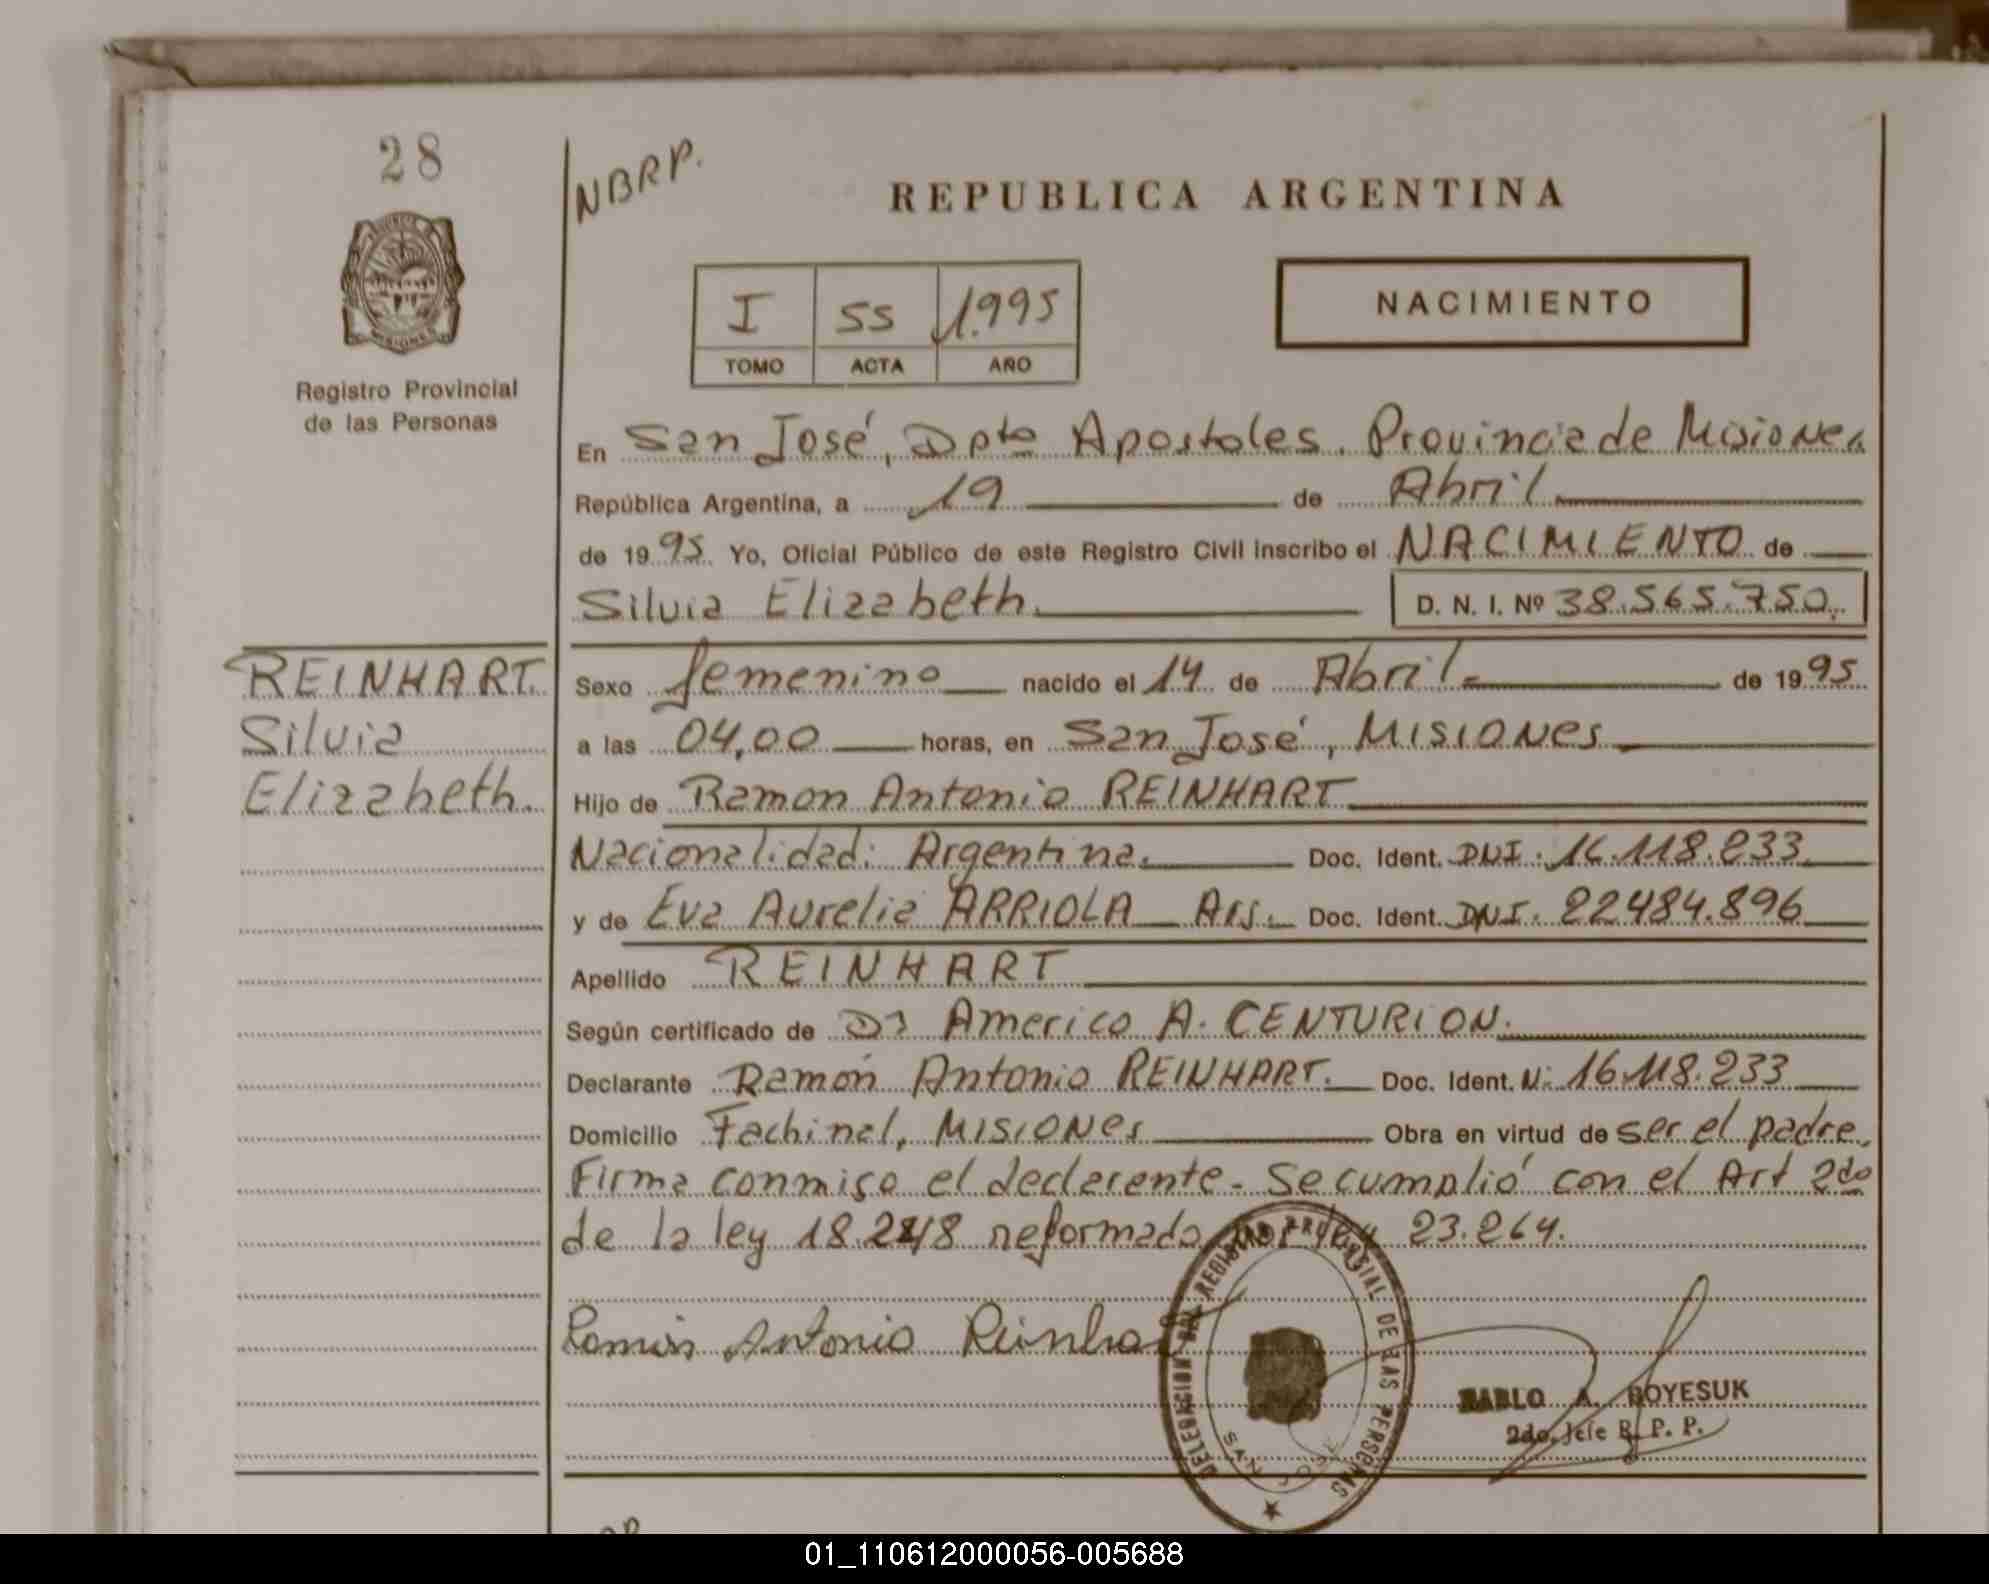 28
NBRP.
REPUBLICA ARGENTINA
I SS 1.995
TOMO ACTA AÑO
NACIMIENTO
MISIONES
Registro Provincial
de las Personas
En San José, Dpto Apostoles. Provincia de Misiones
República Argentina, a 19 de Abril
de 1995. Yo, Oficial Público de este Registro Civil inscribo el NACIMIENTO de
Silvia Elizabeth. D. N. I. Nº 38.565.750.
REINHART.
Silvia
Elizabeth.
Sexo femenino nacido el 14 de Abril de 1995
a las 04,00 horas, en San José, MISIONES
Hijo de Ramon Antonio REINHART
Nacionalidad: Argentina. Doc. Ident. DNI. 16.118.233
y de Eva Aurelia ARRIOLA Arg. Doc. Ident. DNI. 22484.896
Apellido REINHART
Según certificado de Dr Americo A. CENTURION.
Declarante Ramón Antonio REINHART. Doc. Ident. N: 16.118.233
Domicilio Fachinal, MISIONES Obra en virtud de ser el padre.
Firma conmigo el declarante - Se cumplió con el Art 2do
de la ley 18.248 reformada por ley 23.264.
Ramón Antonio Reinhart
DELEGACION DEL REGISTRO PROVINCIAL DE LAS PERSONAS
SAN JOSE
PABLO A. BOYESUK
2do. Jefe R. P. P.
01_110612000056-005688